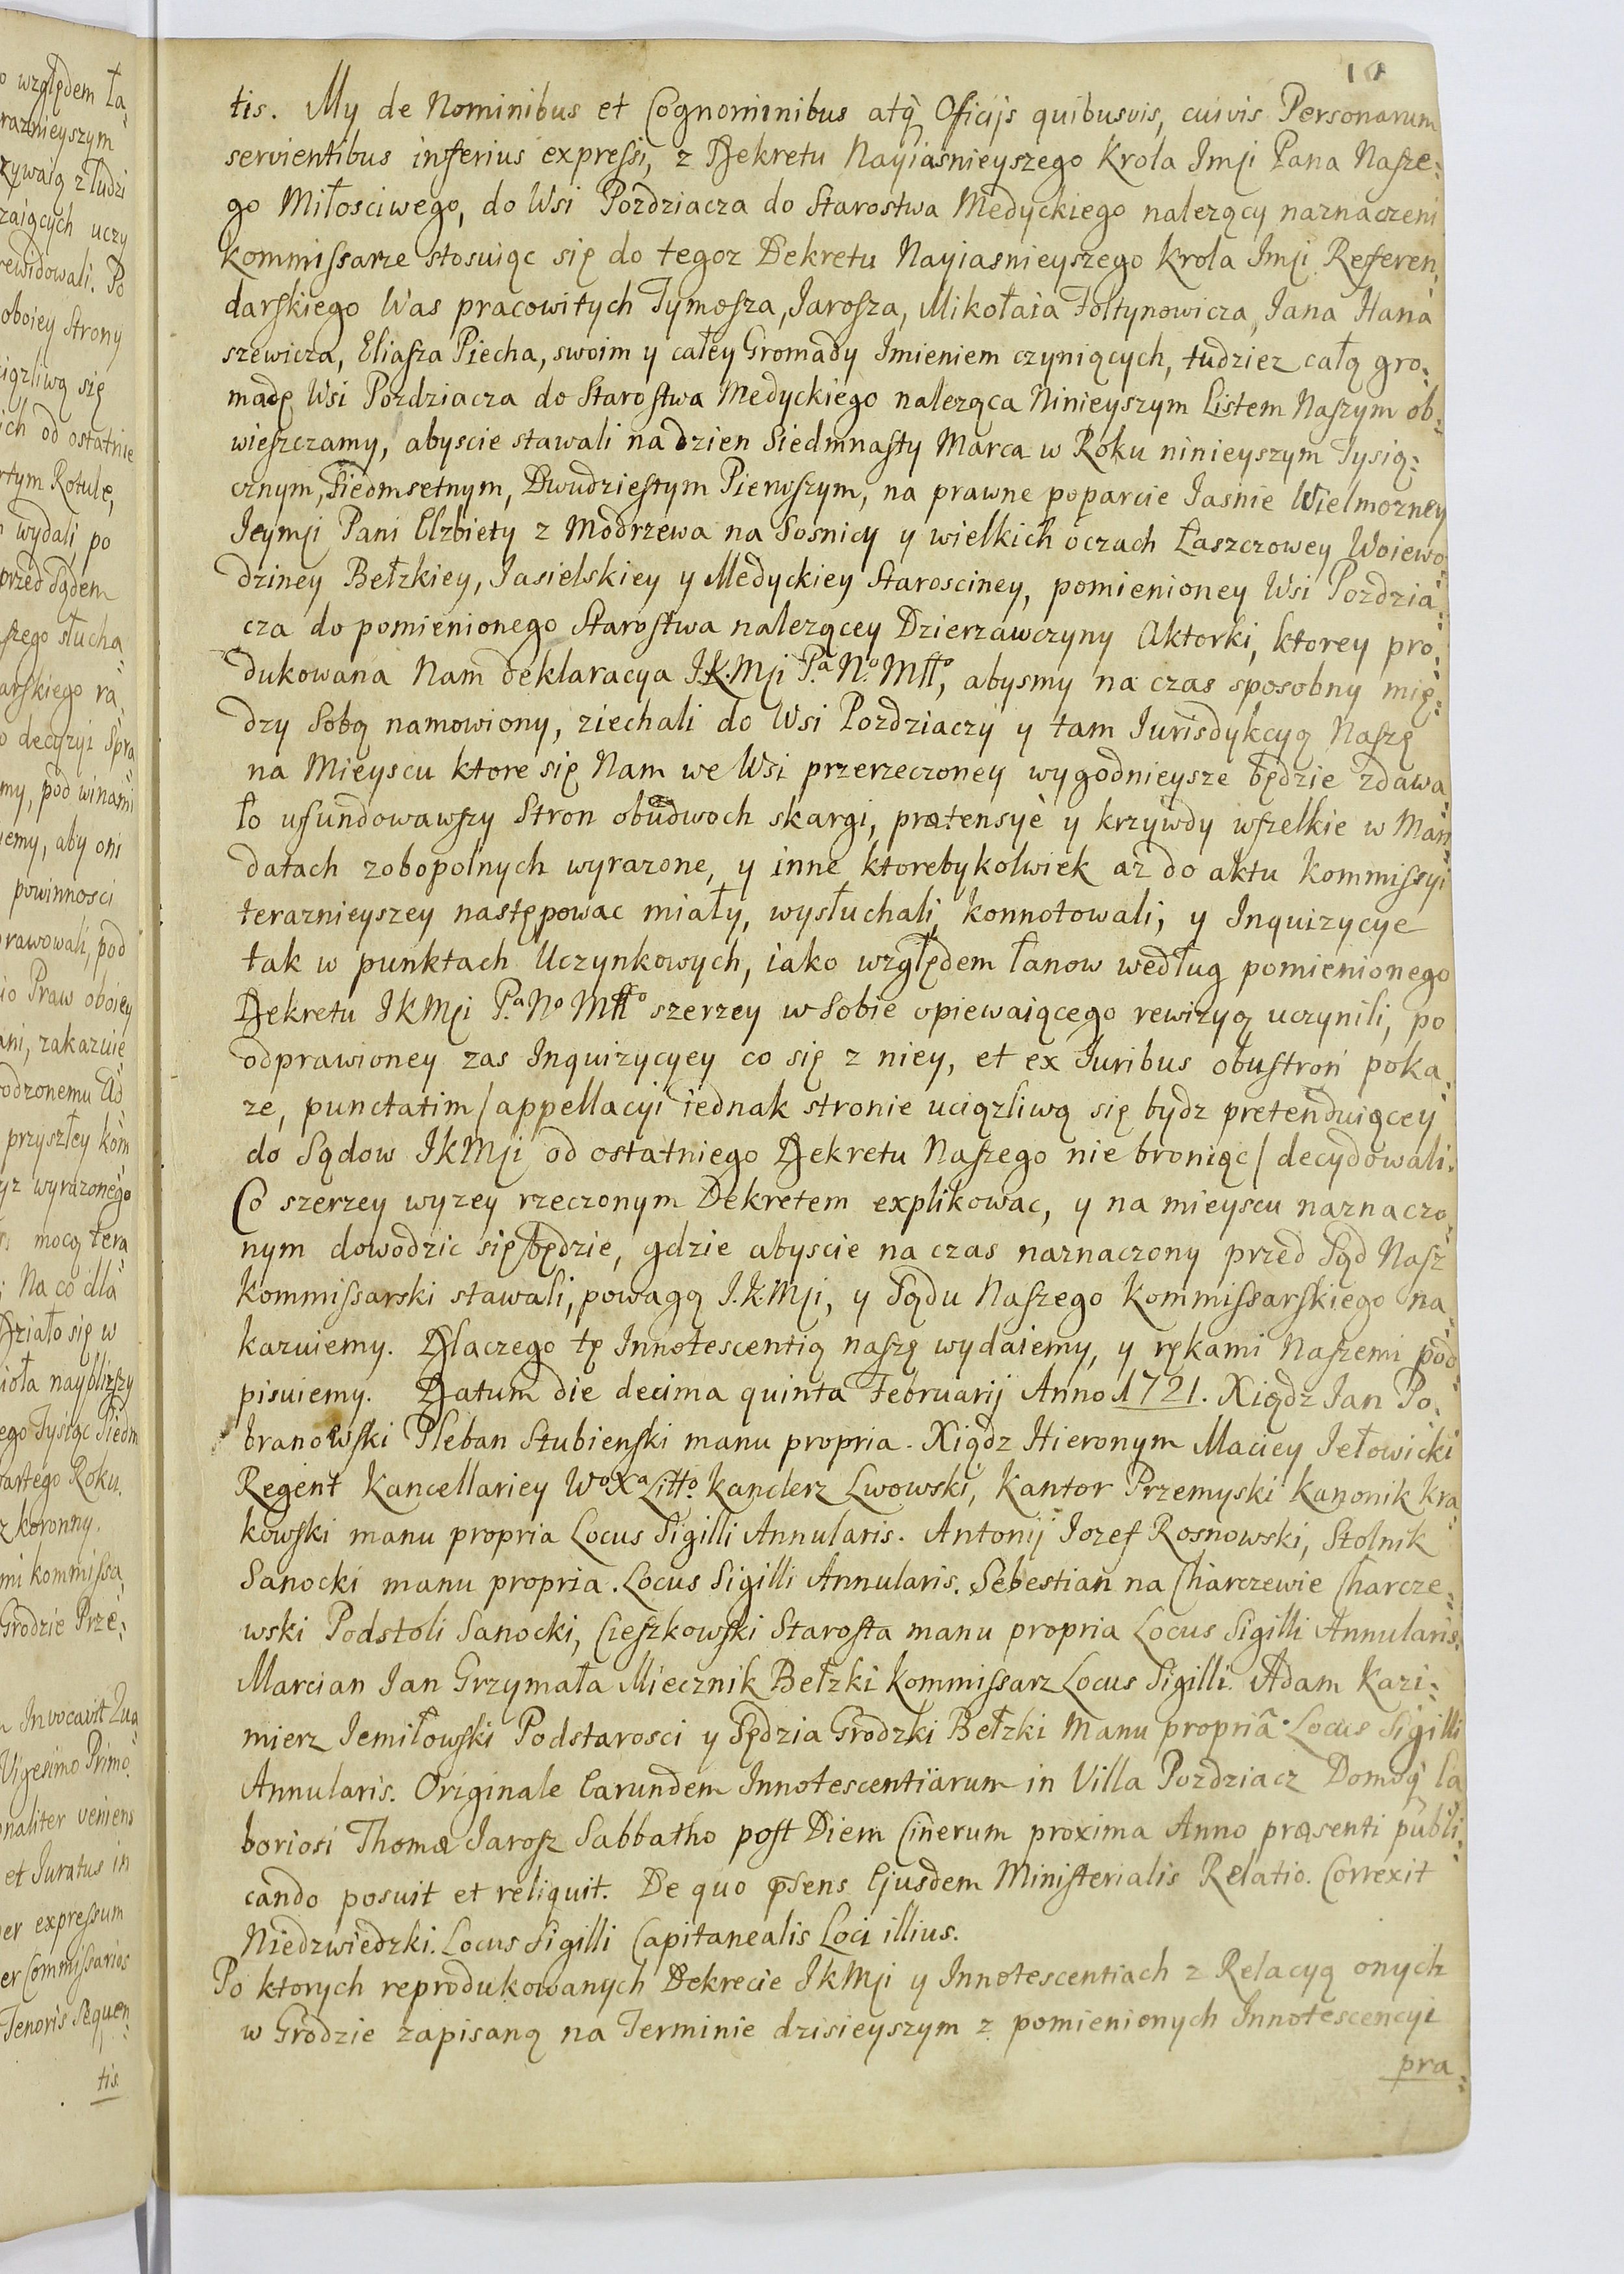 10
tis. My de Nominibus et Cognominibus atq̄ Officijs quibusvis, cuivis Personarum
servientibus inferius expressi, z Dekretu Nayiasnieyszego Krola Jmji Pana Nasze:
go Miłosciwego, do Wsi Pozdziacza do Starostwa Medyckiego nalezący naznaczeni
Kommissarze stosuiąc się do tegoz Dekretu Nayiasnieyszego Krola Jmji Referen:
darskiego Was pracowitych Tymosza, Jarosza, Mikołaia Foltynowicza, Jana Hana
szewicza, Eliasza Piecha, swoim y całey Gromady Jmieniem czyniących, tudziez całą gro:
madę Wsi Pozdziacza do Starostwa Medyckiego naleząca Ninieyszym Listem Naszym ob:
wieszczamy, abyscie stawali na dzien Siedmnasty Marca w Roku ninieyszym Tysią:
cznym, Siedmsetnym, Dwudziestym Pierwszym, na prawne poparcie Jasnie Wielmozney
Jeymji Pani Elzbiety z Modrzewa na Sosnicy y wielkich oczach Łaszczowey Woiewo:
dziney Bełzkiey, Jasielskiey y Medyckiey Starosciney, pomienioney Wsi Pozdzia:
cza do pomienionego Starostwa nalezącey Dzierzawczyny Aktorki, ktorey pro:
dukowana Nam deklaracya J.K.Mji P.a N.o Młło, abysmy na czas sposobny mię:
dzy Sobą namowiony, ziechali do Wsi Pozdziaczy y tam Jurisdykcyą Naszę
na Mieyscu ktore się Nam we Wsi przerzeczoney wygodnieysze będzie zdawa
ło ufundowawszy Stron obudwoch skargi, prætensye y krzywdy wszelkie w Man:
datach zobopolnych wyrazone, y inne ktorebykolwiek az do aktu Kommissyi
teraznieyszey następowac miały, wysłuchali, konnotowali; y Inquizycye
tak w punktach Uczynkowych, iako względem łanow według pomienionego
Dekretu JKMji P.a No Młło szerzey w Sobie opiewaiącego rewizyą uczynili, po
odprawioney zas Inquizycyey co się z niey, et ex Juribus obustroń poka:
ze, punctatim / appellacyi iednak stronie uciązliwą się bydz pretenduiącey
do Sądow JKMji od ostatniego Dekretu Naszego nie broniąc / decydowali.
Co szerzey wyzey rzeczonym Dekretem explikowac, y na mieyscu naznaczo:
nym dowodzic się będzie, gdzie abyscie na czas naznaczony przed Sąd Nasz
Kommissarski stawali, powagą J.K.Mji, y Sądu Naszego Kommissarskiego na:
kazuiemy. Dlaczego tę Innotescentią naszę wydaiemy, y rękami Naszemi pod:
pisuiemy. Datum die decima quinta Februarij Anno 1721. Xiądz Jan Po:
branowski Pleban Stubienski manu propria. Xiądz Hieronym Maciey Jełowicki
Regent Kancellariey Wo Xa Litto. Kanclerz Lwowski, Kantor Przemyski Kanonik Kra
kowski manu propria Locus Sigilli Annularis. Antonij Jozef Rosnowski, Stolnik
Sanocki manu propria. Locus Sigilli Annularis. Sebestian na Charczewie Charcze:
wski Podstoli Sanocki, Cieszkowski Starosta manu propria Locus Sigilli Annularis.
Marcian Jan Grzymała Miecznik Bełzki Kommissarz Locus Sigilli. Adam Kazi:
mierz Jemiłowski Podstarosci y Sędzia Grodzki Bełzki Manu propriâ. Locus Sigilli
Annularis. Originale Earundem Innotescentiarum in Villa Pozdziacz Domoq̄ la
boriosi Thomæ Jarosz Sabbatho post Diem Cinerum proxima Anno præsenti publi:
cando posuit et reliquit. De quo p̄sens Ejusdem Ministerialis Relatio. Correxit
Niedzwiedzki. Locus Sigilli Capitanealis Loci illius.
Po ktorych reprodukowanych Dekrecie JKMji y Innotescentiach z Relacyą onych
w Grodzie zapisaną na Terminie dzisieyszym z pomienionych Innotescencyi
pra: